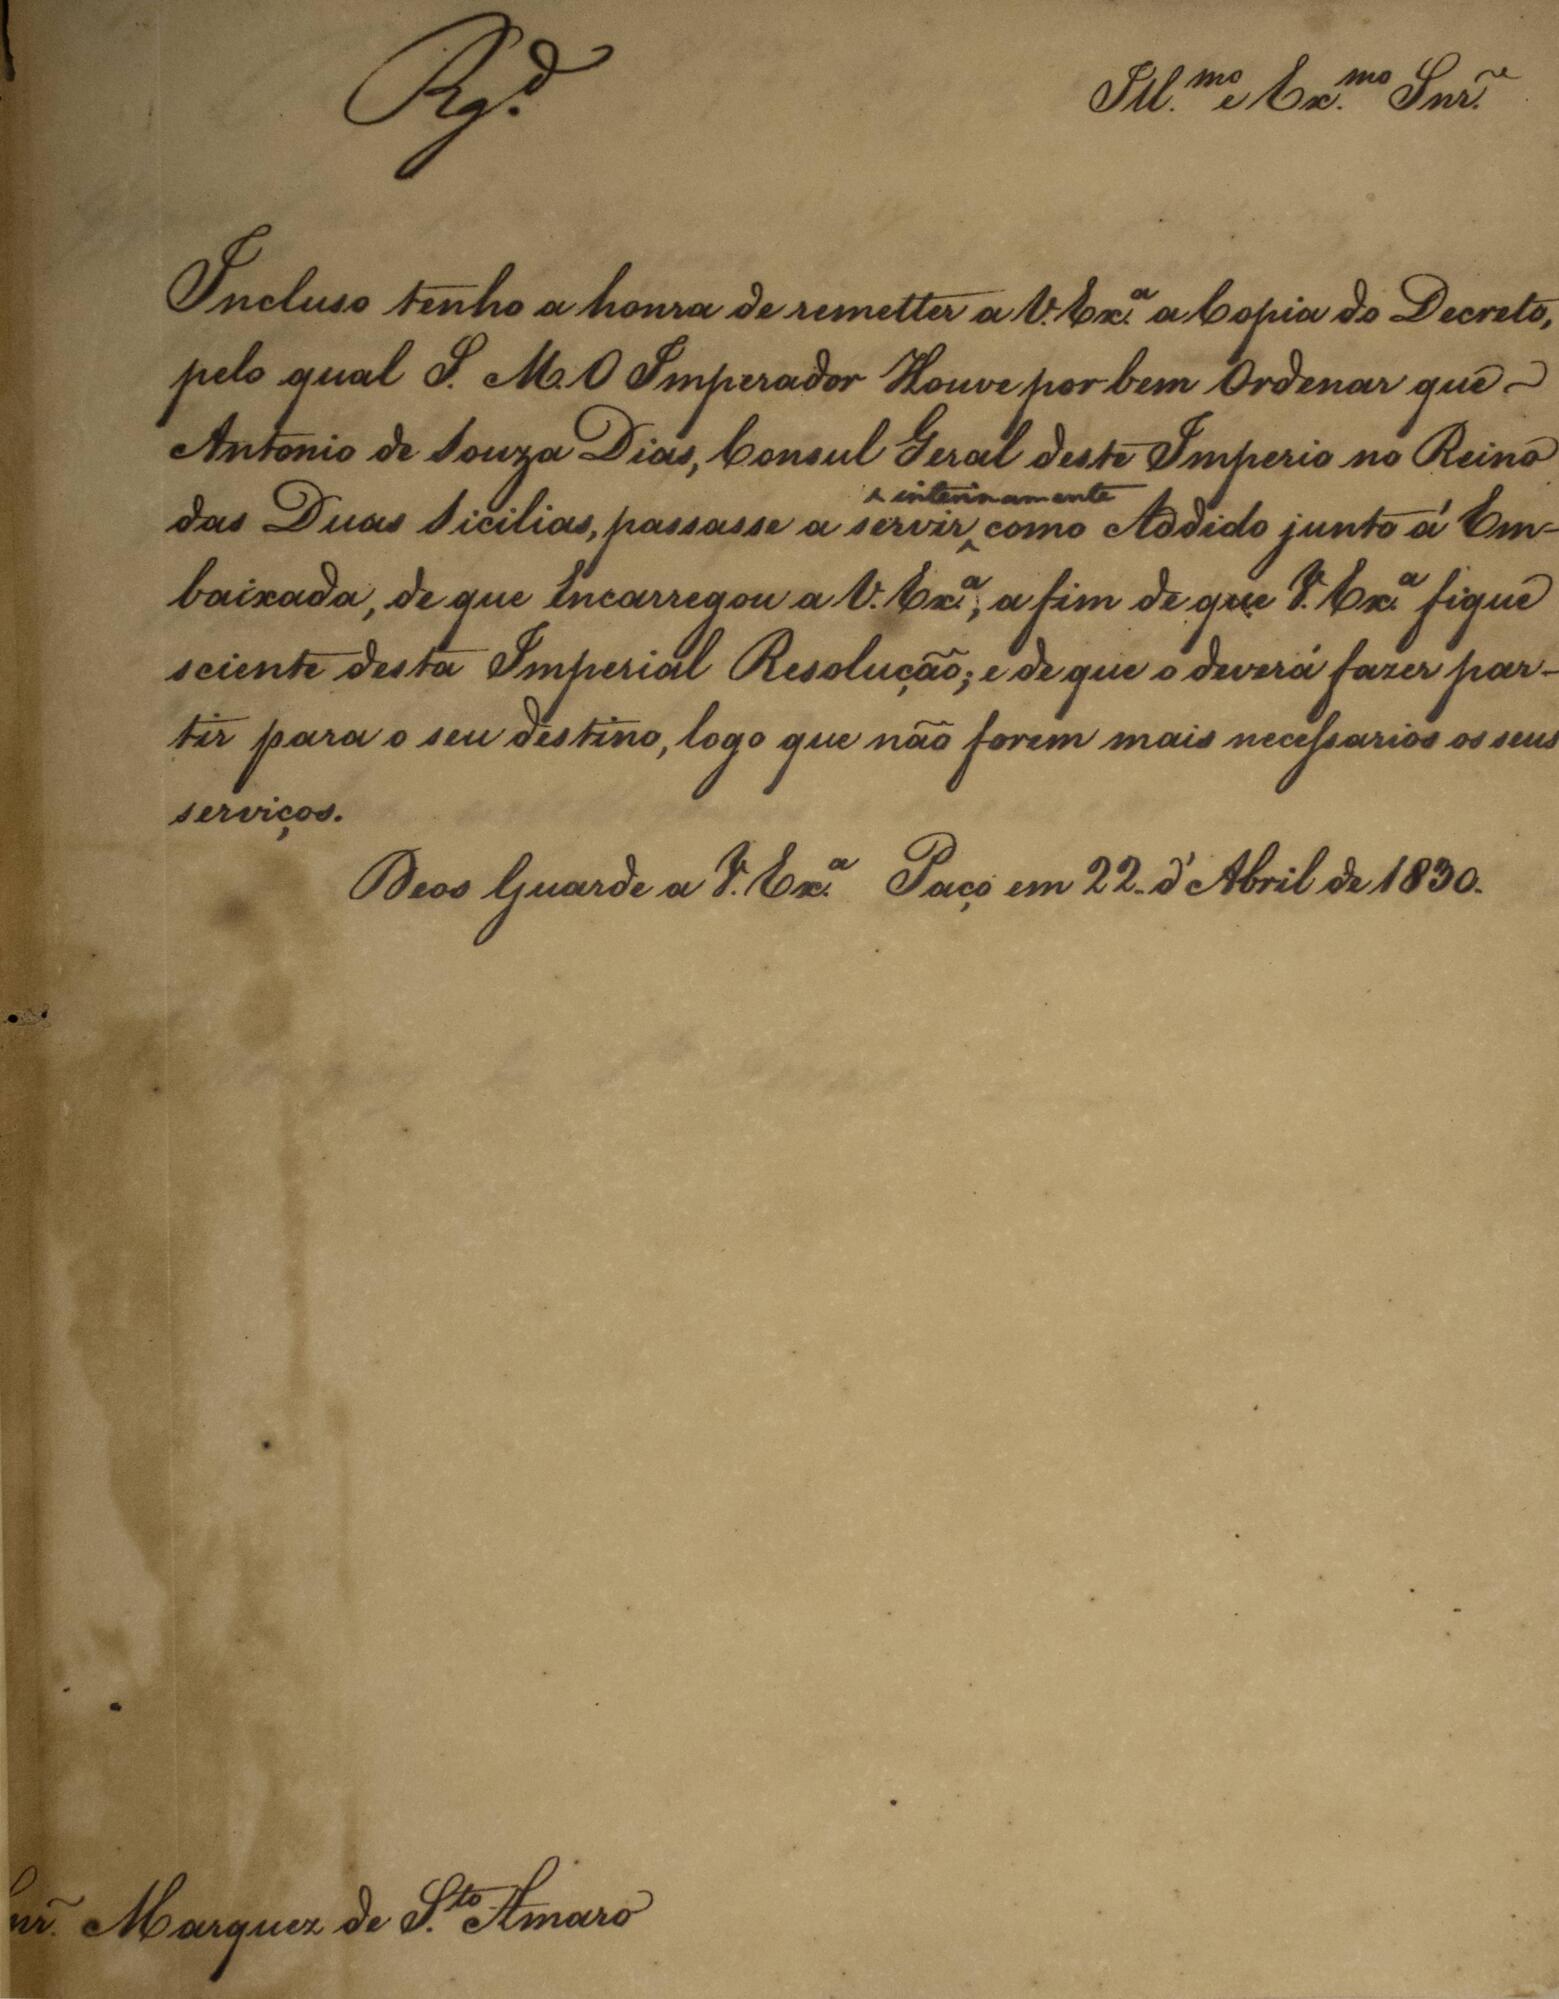 Rg.d
Ill.mo e Ex.mo Snr.e
Incluso tenho a honra de remetter a V. Ex.a a Copia do Decreto,
pelo qual S. M. O Imperador Houve por bem Ordenar que
Antonio de Souza Dias, Consul Geral deste Imperio no Reino
^ interinamente
das Duas Sicilias, passasse a servir ^ como Addido junto á Em-
baixada, de que Encarregou a V. Ex.a; a fim de que V. Ex.a fique
sciente desta Imperial Resolução; e de que o deverá fazer par-
tir para o seu destino, logo que não forem mais necessarios os seus
serviços.
Deos Guarde a V. Ex.a Paço em 22 d'Abril de 1830.
Snr. Marquez de S.to Amaro